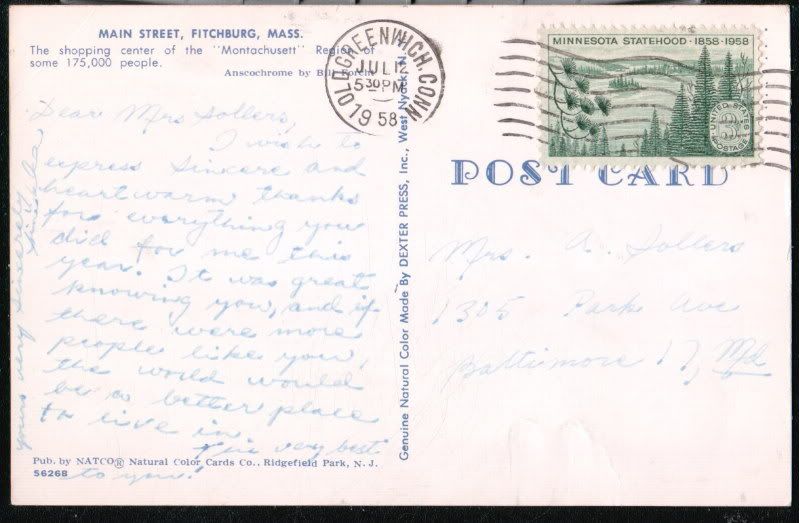 MAIN STREET, FITCHBURG, MASS.
The shopping center of the "Montachusett" Region of
some 175,000 people.
Anscochrome by Bill Forcht
Dear Mrs Sollers,
I wish to
express sincere and
heartwarm thanks
for everything you
did for me this
year. It was great
knowing you, and if
there were more
people like you,
the world would
be a better place
to live in.
very best
to you!
yours very sincerely
Pub. by NATCO® Natural Color Cards Co., Ridgefield Park, N. J.
56268
Genuine Natural Color Made By DEXTER PRESS, Inc., West Nyack, N.Y.
OLD GREENWICH, CONN
JUL 12
5 30 PM
1958
MINNESOTA STATEHOOD · 1858-1958
UNITED STATES
3¢
POSTAGE
POST CARD
Mrs. A. Sollers
1305 Park Ave
Baltimore 17, Md